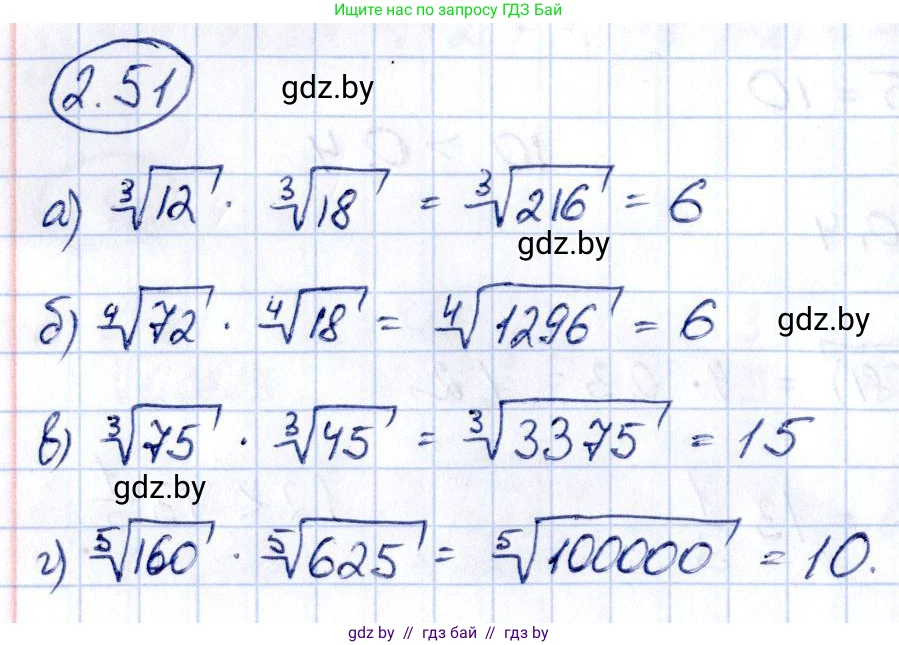 Ищите нас по запросу ГДЗ Бай
2.51
gdz.by
а) ∛12 · ∛18 = ∛216 = 6
gdz.by
б) ∜72 · ∜18 = ∜1296 = 6
gdz.by
в) ∛75 · ∛45 = ∛3375 = 15
gdz.by
г) ⁵√160 · ⁵√625 = ⁵√100000 = 10.
gdz.by // гдз бай // гдз by